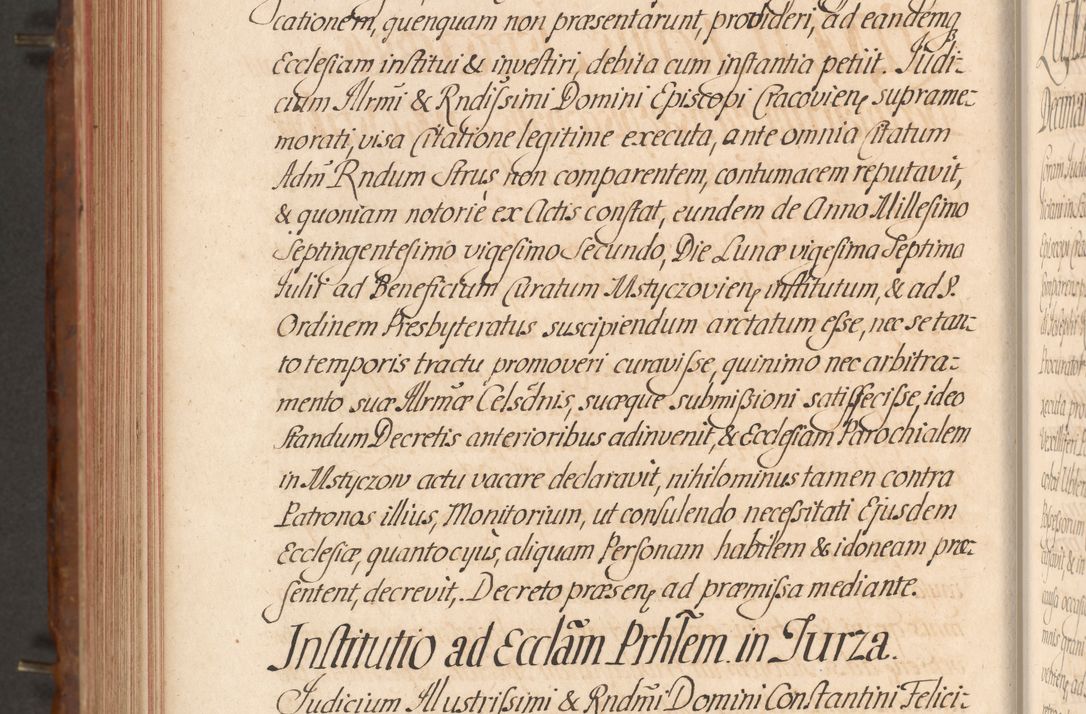 cationem, quenquam non præsentarunt, provideri, ad eandemq
Ecclesiam institui & investiri, debita cum instantia petiit. Judi=
cium Illrmi & Rndissimi Domini Episcopi Cracovienę suprame=
morati, visa Citatione legitime executa, ante omnia Citatum
Adm̃ Rndum Strus non comparentem, contumacem reputavit,
& quoniam notorie ex Actis constat, eundem de Anno Millesimo
Septingentesimo vigesimo Secundo, Die Lunæ vigesima Septima
Julii ad Beneficium Curatum Mstyczovienę institutum, & ad S.
Ordinem Presbyteratus suscipiendum arctatum esse, nec se tan=
to temporis tractu promoveri curavisse, quinimo nec arbitra=
mento suæ Illrmæ Celsdnis, suæque submißioni satisfecisse, ideo
standum Decretis anterioribus adinvenit, & Ecclesiam Parochialem
in Mstyczow actu vacare declaravit, nihilominus tamen contra
Patronos illius, Monitorium, ut consulendo necessitati Ejusdem
Ecclesiæ, quantocyus, aliquam Personam habilem & idoneam præ=
sentent, decrevit, Decreto præsenę ad præmissa mediante.
Institutio ad Ecclãm Prhlem in Jurza.
Judicium Illustrissimi & Rndmi Domini Constantini Felici=